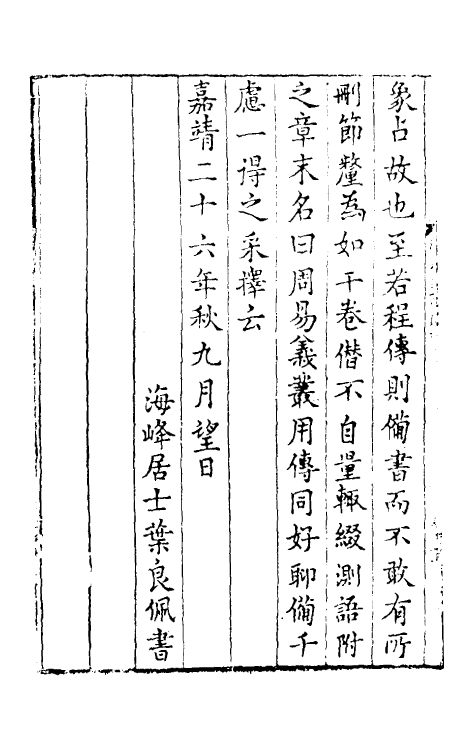 象占故也至若程傳則備書而不敢有所
刪節釐為如干卷僭不自量輙綴測語附
之章末名曰周易義叢用傳同好聊備千
慮一得之采擇云
嘉靖二十六年秋九月望日
海峰居士葉良佩書